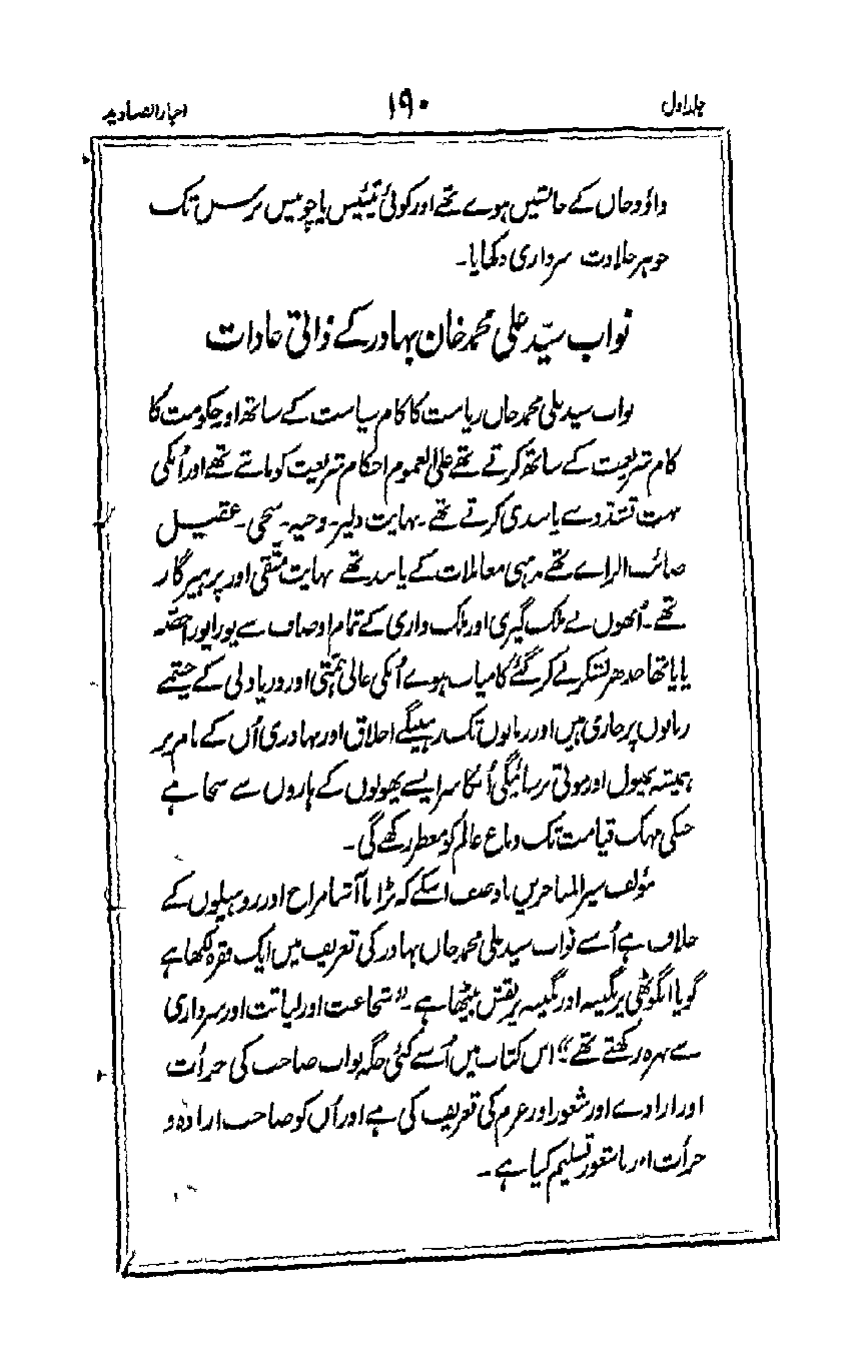 جلد اول ۱۹۰ اخبار الصنادید
داؤد خاں کے جانشیں ہوے تھے اور کوئی تیئیس یا چوبیس برس تک
جوہر جلادت سرداری دکھایا۔
نواب سیّد علی محمد خان بہادر کے ذاتی عادات
نواب سید علی محمد خاں ریاست کا کام سیاست کے ساتھ اور حکومت کا
کام شریعت کے ساتھ کرتے تھے علی العموم احکام شریعت کو مانتے تھے اور اُنکی
بہت تشدد سے پابندی کرتے تھے۔ نہایت دلیر۔ وجیہ۔ سخی۔ عقیل
صائب الراے تھے مذہبی معاملات کے پابند تھے نہایت متقی اور پرہیزگار
تھے۔ اُنھوں نے ملک گیری اور ملک داری کے تمام اوصاف سے پورا پورا حصّہ
پایا تھا جدھر لشکر لے کر گئے کامیاب ہوے اُنکی عالی ہمتی اور دریا دلی کے چشمے
زبانوں پر جاری ہیں اور زمانوں تک رہینگے اخلاق اور بہادری اُن کے نام پر
ہمیشہ پھول اور موتی برسائیگی اُنکا سر ایسے پھولوں کے ہاروں سے سجا ہے
جنکی مہک قیامت تک دماغ عالم کو معطر رکھے گی۔
مؤلف سیر المتاخرین باوصف اسکے کہ بڑا ناآشنا مزاج اور روہیلوں کے
خلاف ہے اُسنے نواب سید علی محمد خاں بہادر کی تعریف میں ایک فقرہ لکھا ہے
گویا انگوٹھی پر نگینہ اور نگینہ پر نقش بیٹھا ہے۔ "شجاعت اور لیاقت اور سرداری
سے بہرہ رکھتے تھے" اس کتاب میں اُسنے کئی جگہ نواب صاحب کی جرأت
اور ارادے اور شعور اور عزم کی تعریف کی ہے اور اُن کو صاحب ارادہ و
جرأت اور باشعور تسلیم کیا ہے۔